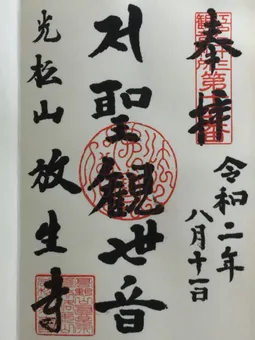 奉拝
令和二年
八月十一日
聖観世音
光松山 放生寺